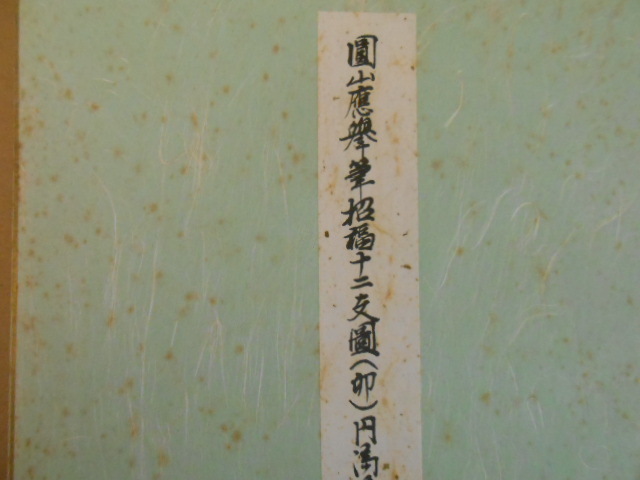 圓山應擧筆招福十二支圖(卯)円満